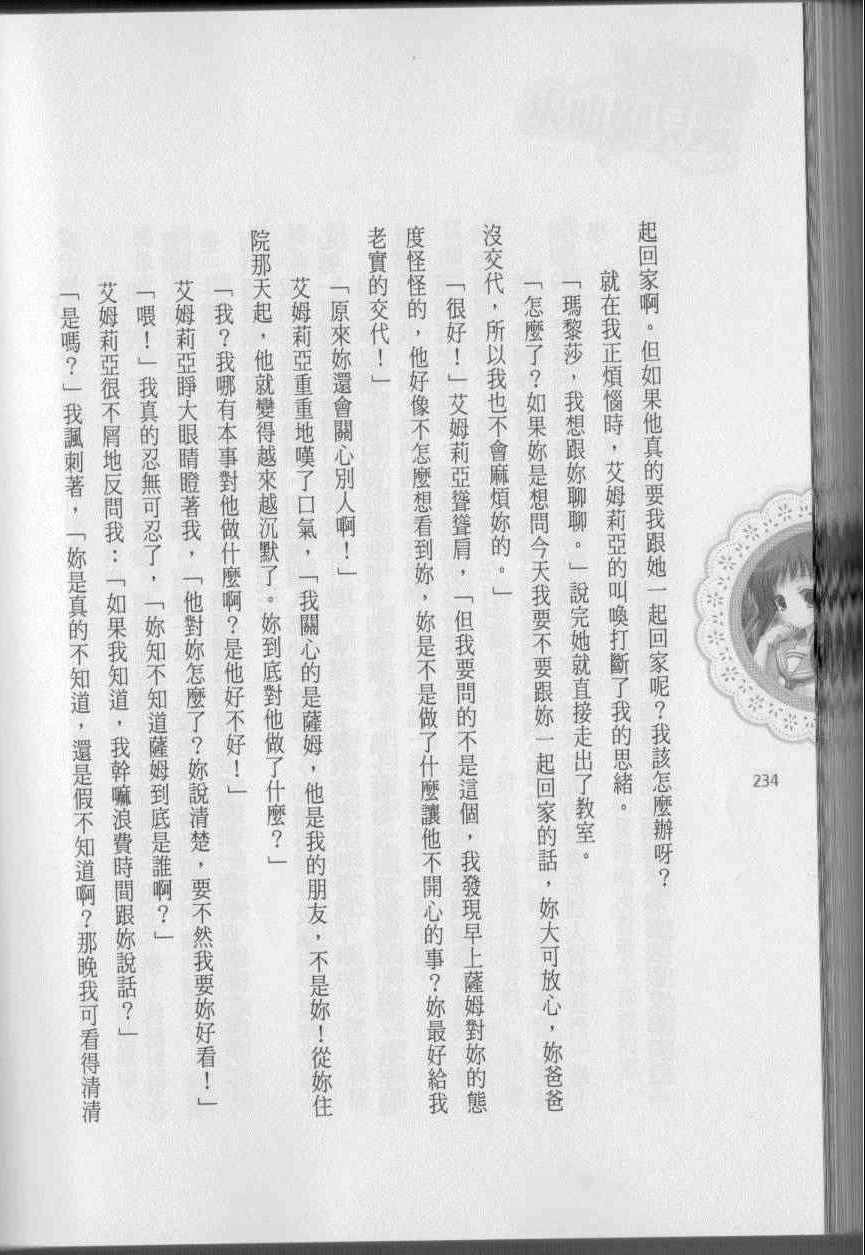 起回家啊。但如果他真的要我跟她一起回家呢？我該怎麼辦呀？
就在我正煩惱時，艾姆莉亞的叫喚打斷了我的思緒。
「瑪黎莎，我想跟妳聊聊。」說完她就直接走出了教室。
「怎麼了？如果妳是想問今天我要不要跟妳一起回家的話，妳大可放心，妳爸爸
沒交代，所以我也不會麻煩妳的。」
「很好！」艾姆莉亞聳聳肩，「但我要問的不是這個，我發現早上薩姆對妳的態
度怪怪的，他好像不怎麼想看到妳，妳是不是做了什麼讓他不開心的事？妳最好給我
老實的交代！」
「原來妳還會關心別人啊！」
艾姆莉亞重重地嘆了口氣，「我關心的是薩姆，他是我的朋友，不是妳！從妳住
院那天起，他就變得越來越沉默了。妳到底對他做了什麼？」
「我？我哪有本事對他做什麼啊？是他好不好！」
艾姆莉亞睜大眼睛瞪著我，「他對妳怎麼了？妳說清楚，要不然我要妳好看！」
「喂！」我真的忍無可忍了，「妳知不知道薩姆到底是誰啊？」
艾姆莉亞很不屑地反問我：「如果我知道，我幹嘛浪費時間跟妳說話？」
「是嗎？」我諷刺著，「妳是真的不知道，還是假不知道啊？那晚我可看得清清
234